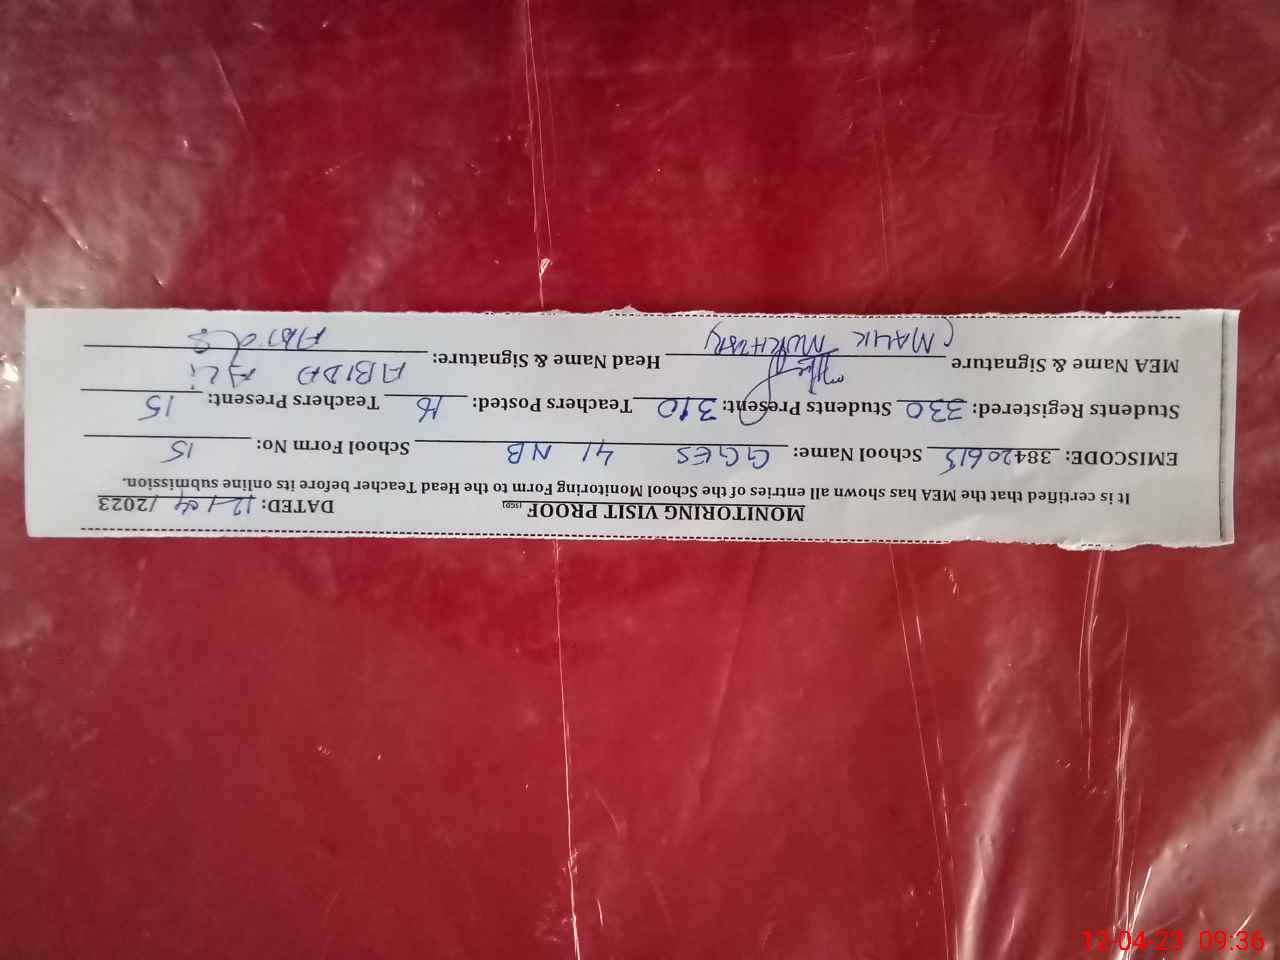 MONITORING VISIT PROOF DATED: 12/04/2023
It is certified that the MEA has shown all entries of the School Monitoring Form to the Head Teacher before its online submission.
EMISCODE: 38420615 School Name: GGES 41 NB School Form No: 15
Students Registered: 330 Students Present: 310 Teachers Posted: 16 Teachers Present: 15
MEA Name & Signature Head Name & Signature: ABIDA ALi
(MALIK
12-04-23 09:36